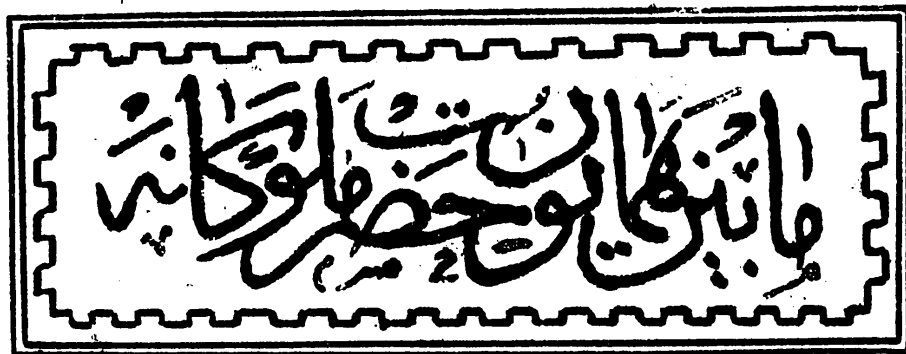 مابین همایون حضرت ملوکانه